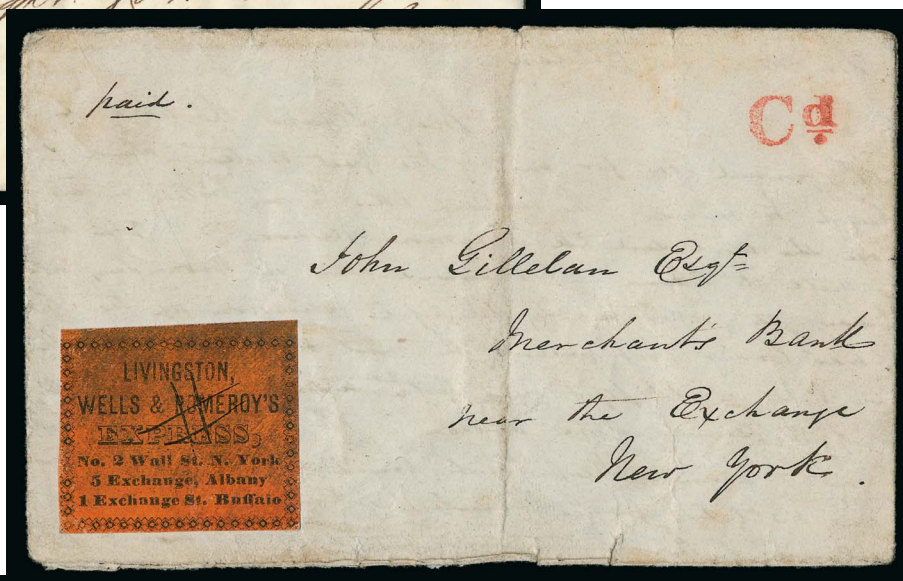 paid.
Cd
John Gillelan Esqr
Merchants Bank
near the Exchange
New York.
LIVINGSTON,
WELLS & POMEROY'S
EXPRESS,
No. 2 Wall St. N. York
5 Exchange, Albany
1 Exchange St. Buffalo